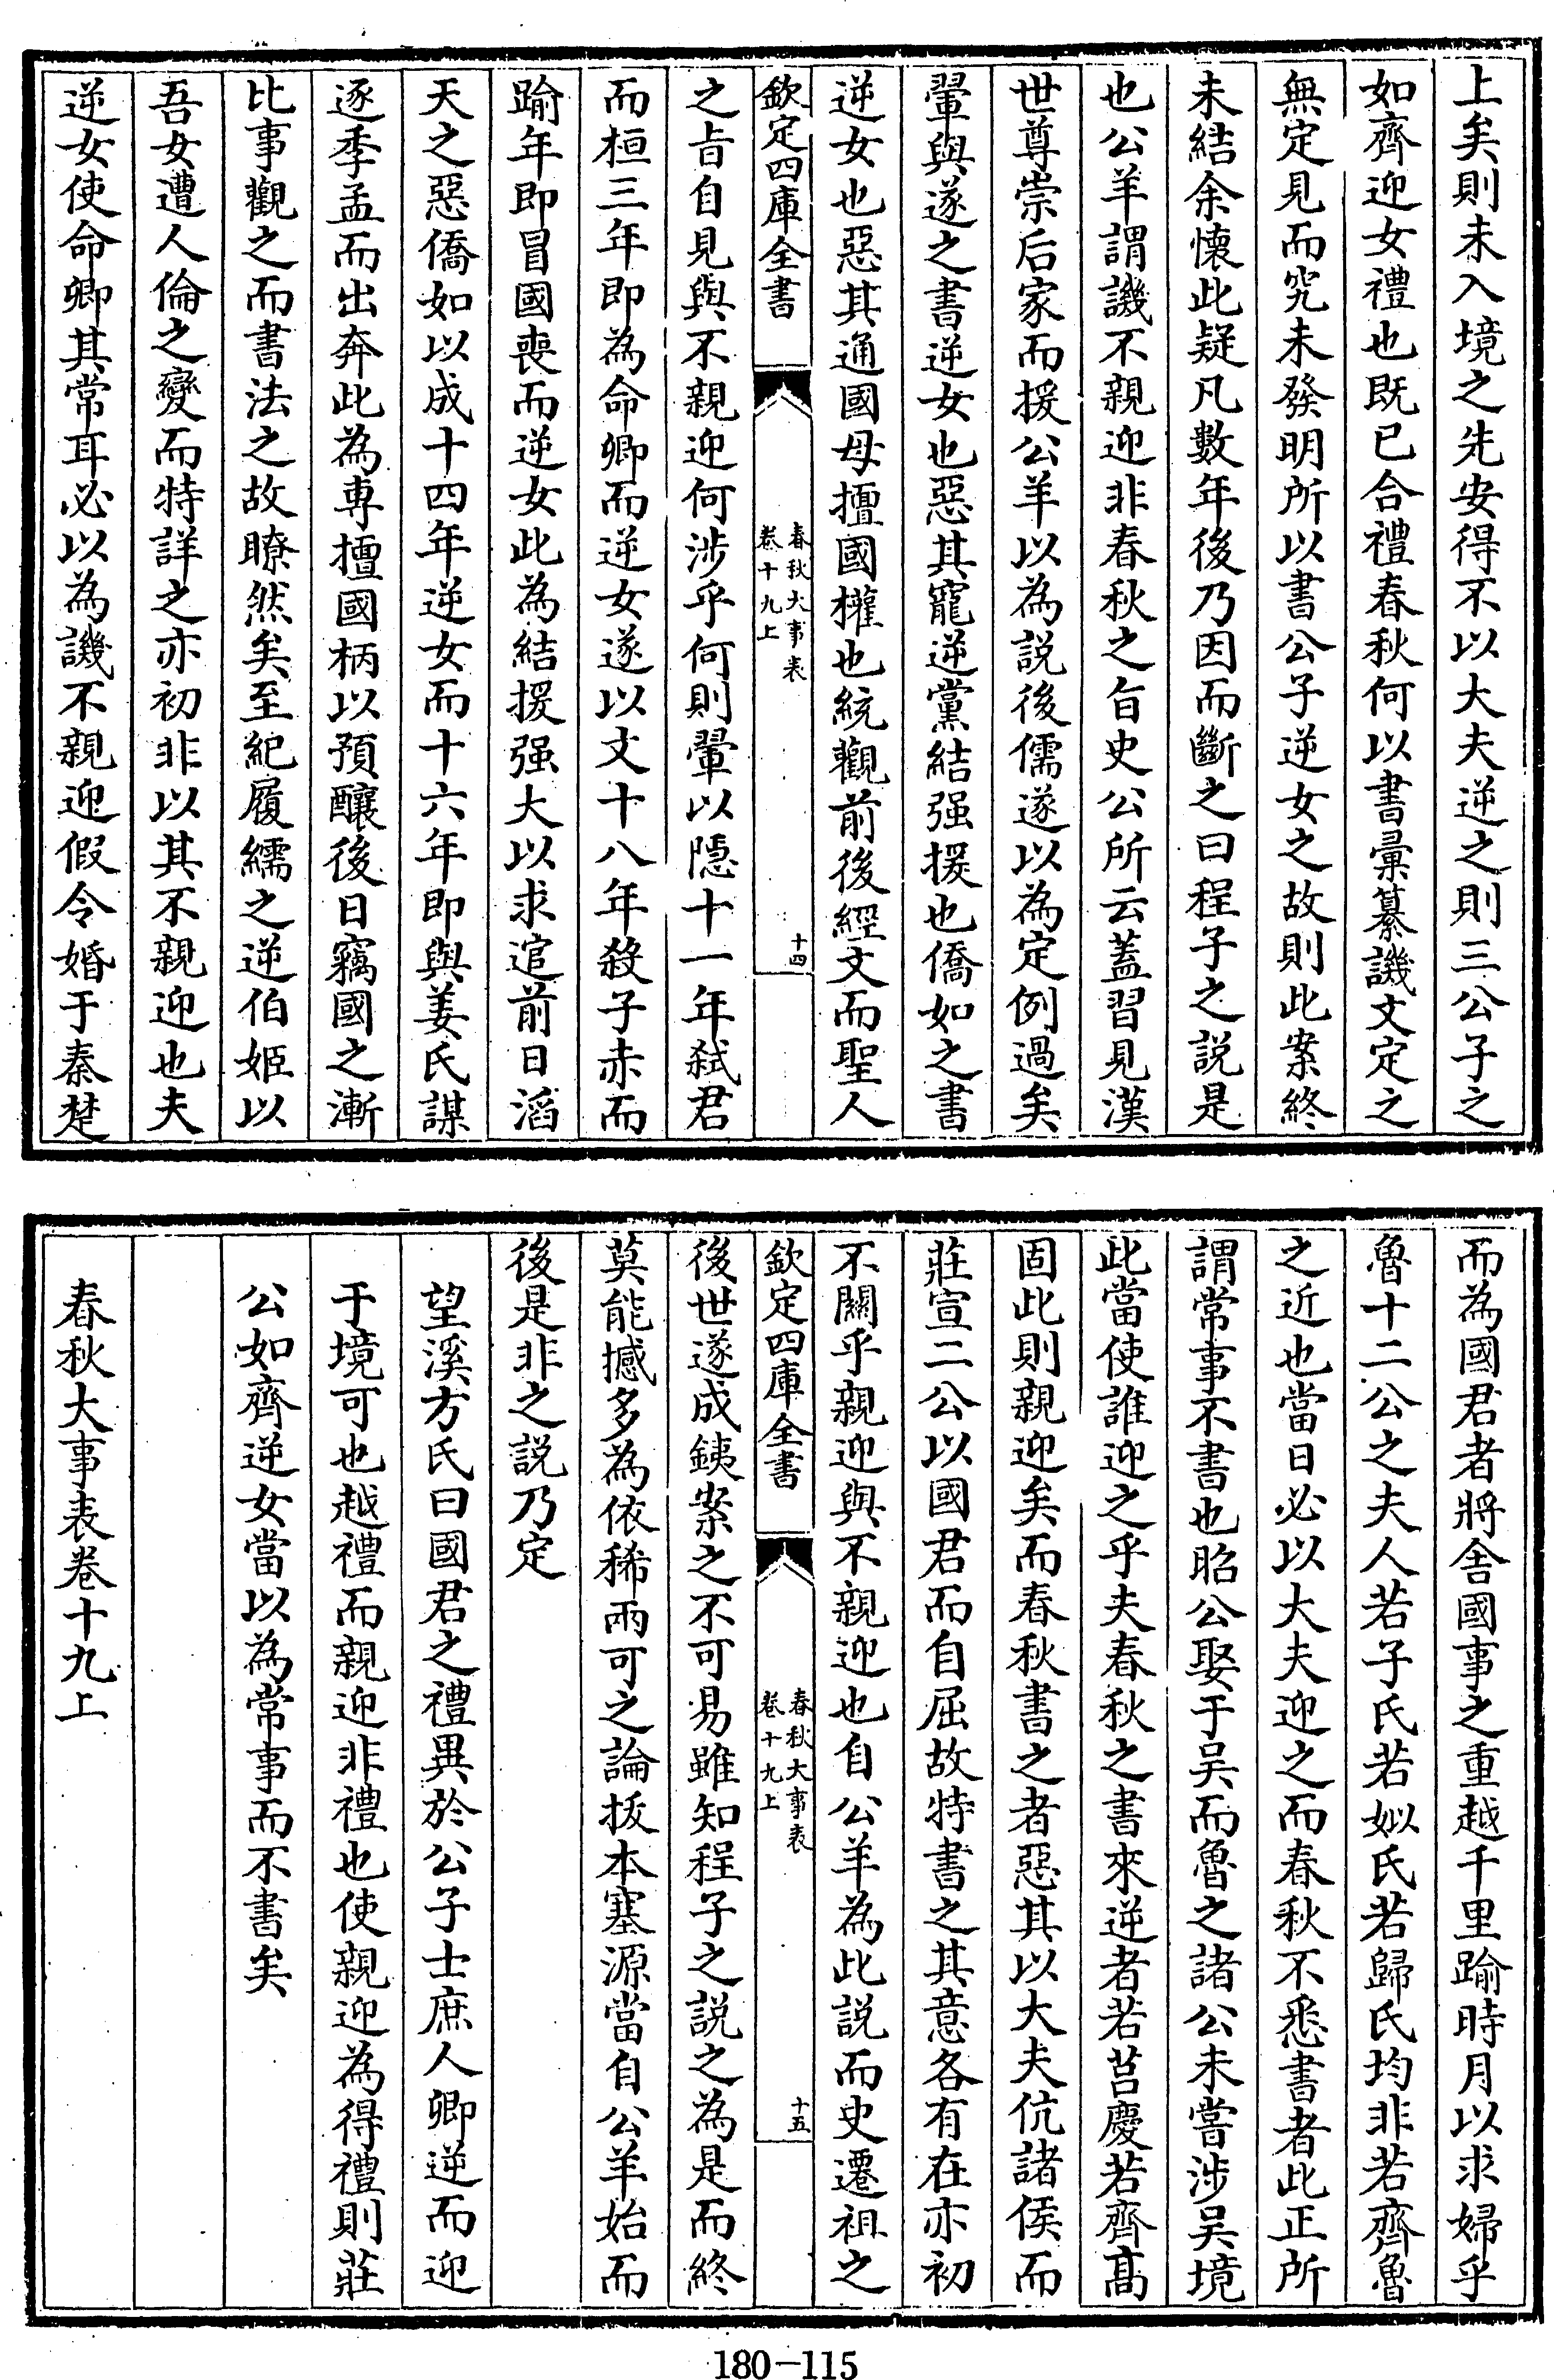 上矣則未入境之先安得不以大夫逆之則三公子之
如齊迎女禮也既已合禮春秋何以書彚纂譏文定之
無定見而究未發明所以書公子逆女之故則此案終
未結余懷此疑凡數年後乃因而斷之曰程子之説是
也公羊謂譏不親迎非春秋之旨史公所云蓋習見漢
世尊崇后家而援公羊以為説後儒遂以為定例過矣
翬與遂之書逆女也惡其寵逆黨結强援也僑如之書
逆女也惡其通國母擅國權也統觀前後經文而聖人
欽定四庫全書
春秋大事表
卷十九上
十四
之旨自見與不親迎何涉乎何則翬以隠十一年弑君
而桓三年即為命卿而逆女遂以文十八年殺子赤而
踰年即冒國喪而逆女此為結援强大以求逭前日滔
天之惡僑如以成十四年逆女而十六年即與姜氏謀
逐季孟而出奔此為専擅國柄以預釀後日竊國之漸
比事觀之而書法之故瞭然矣至紀履繻之逆伯姬以
吾女遭人倫之變而特詳之亦初非以其不親迎也夫
逆女使命卿其常耳必以為譏不親迎假令婚于秦楚
而為國君者將舍國事之重越千里踰時月以求婦乎
魯十二公之夫人若子氏若姒氏若歸氏均非若齊魯
之近也當日必以大夫迎之而春秋不悉書者此正所
謂常事不書也昭公娶于吳而魯之諸公未嘗涉吳境
此當使誰迎之乎夫春秋之書來逆者若莒慶若齊髙
固此則親迎矣而春秋書之者惡其以大夫伉諸侯而
莊宣二公以國君而自屈故特書之其意各有在亦初
不關乎親迎與不親迎也自公羊為此説而史遷祖之
欽定四庫全書
春秋大事表
卷十九上
十五
後世遂成銕案之不可易雖知程子之説之為是而終
莫能撼多為依稀兩可之論拔本塞源當自公羊始而
後是非之説乃定
望溪方氏曰國君之禮異於公子士庶人卿逆而迎
于境可也越禮而親迎非禮也使親迎為得禮則莊
公如齊逆女當以為常事而不書矣
春秋大事表卷十九上
180-115